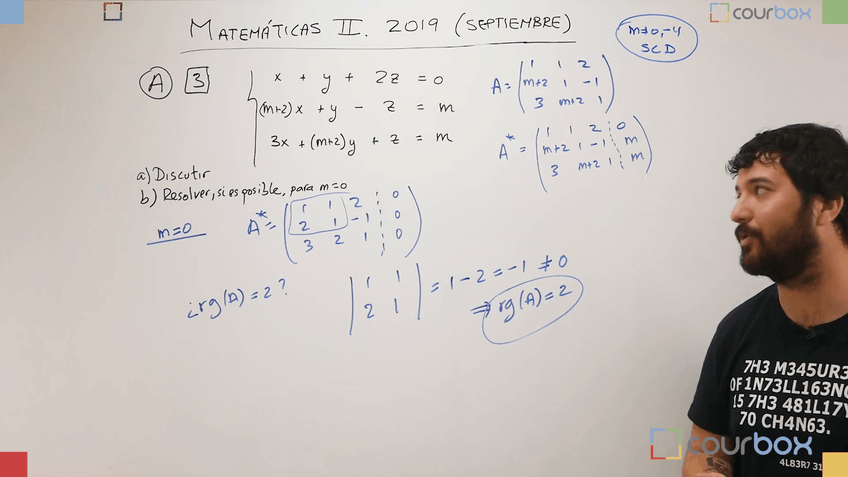 courbox
MATEMÁTICAS II. 2019 (SEPTIEMBRE)
m≠0,-4
SCD
A 3
x + y + 2z = 0
(m+2)x + y - z = m
3x + (m+2)y + z = m
A = ( 1 1 2
m+2 1 -1
3 m+2 1 )
A* = ( 1 1 2 0
m+2 1 -1 m
3 m+2 1 m )
a) Discutir
b) Resolver, si es posible, para m=0
m=0
A* = ( 1 1 2 0
2 1 -1 0
3 2 1 0 )
¿rg(A)=2?
| 1 1
2 1 | = 1-2 = -1 ≠ 0
⇒ rg(A)=2
7H3 M345UR3
OF 1N73LL163NC
15 7H3 481L17Y
70 CH4N63.
4L83R7 31
courbox